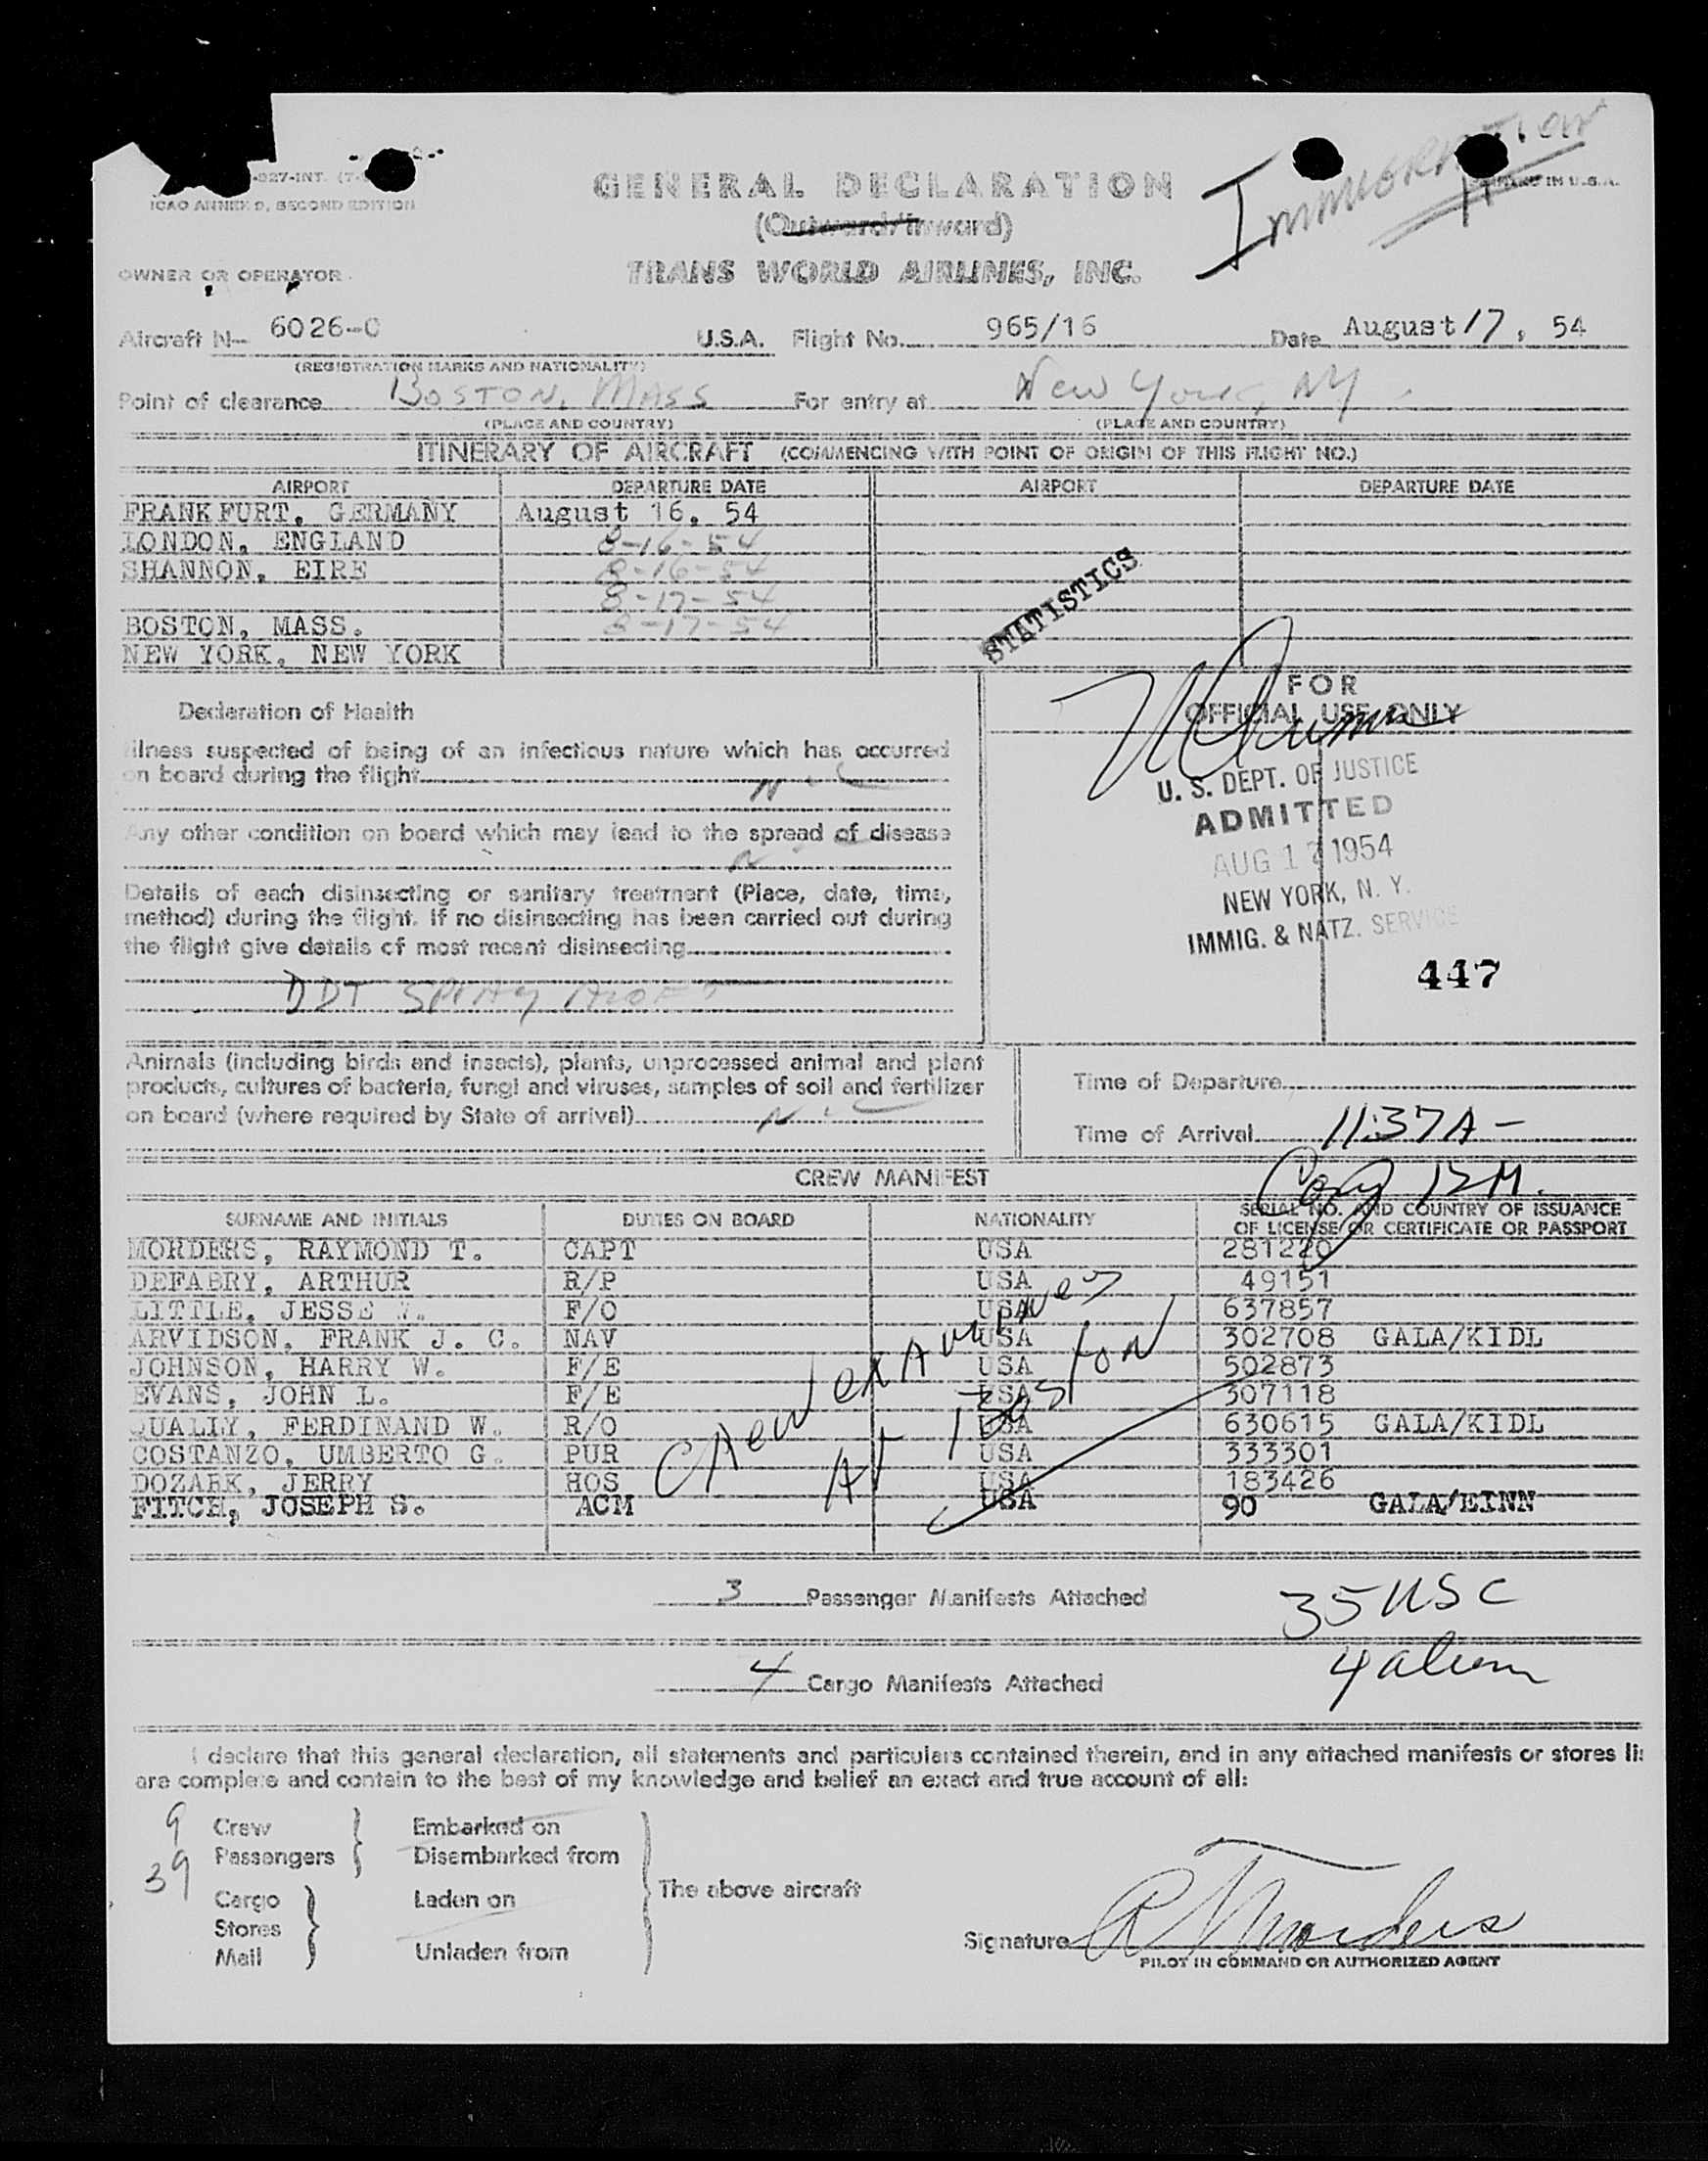 -827-INT. (7-
ICAO ANNEX 9, SECOND EDITION
GENERAL DECLARATION
(Outward/Inward)
Immigration
IN U.S.A.
OWNER OR OPERATOR
TRANS WORLD AIRLINES, INC.
Aircraft N- 6026-C U.S.A. Flight No. 965/16 Date August 17, 54
(REGISTRATION MARKS AND NATIONALITY)
Point of clearance BOSTON, MASS For entry at New York, NY
(PLACE AND COUNTRY) (PLACE AND COUNTRY)
ITINERARY OF AIRCRAFT (COMMENCING WITH POINT OF ORIGIN OF THIS FLIGHT NO.)
AIRPORT DEPARTURE DATE AIRPORT DEPARTURE DATE
FRANKFURT, GERMANY August 16, 54
LONDON, ENGLAND 8-16-54
SHANNON, EIRE 8-16-54
8-17-54
BOSTON, MASS. 8-17-54
NEW YORK, NEW YORK
STATISTICS
Declaration of Health
illness suspected of being of an infectious nature which has occurred
on board during the flight
Any other condition on board which may lead to the spread of disease
Details of each disinsecting or sanitary treatment (Place, date, time,
method) during the flight. If no disinsecting has been carried out during
the flight give details of most recent disinsecting
DDT SPRAY ALOFT
FOR
OFFICIAL USE ONLY
U. S. DEPT. OF JUSTICE
ADMITTED
AUG 17 1954
NEW YORK, N. Y.
IMMIG. & NATZ. SERVICE
447
Animals (including birds and insects), plants, unprocessed animal and plant
products, cultures of bacteria, fungi and viruses, samples of soil and fertilizer
on board (where required by State of arrival)
Time of Departure
Time of Arrival 11:37A-
CREW MANIFEST
SURNAME AND INITIALS DUTIES ON BOARD NATIONALITY SERIAL NO. AND COUNTRY OF ISSUANCE
OF LICENSE OR CERTIFICATE OR PASSPORT
MORDERS, RAYMOND T. CAPT USA 281220
DEFABRY, ARTHUR R/P USA 49151
LITTLE, JESSE W. F/O USA 637857
ARVIDSON, FRANK J. C. NAV USA 302708 GALA/KIDL
JOHNSON, HARRY W. F/E USA 502873
EVANS, JOHN L. F/E USA 307118
QUALLY, FERDINAND W. R/O USA 630615 GALA/KIDL
COSTANZO, UMBERTO G. PUR USA 333301
DOZARK, JERRY HOS USA 183426
FITCH, JOSEPH S. ACM USA 90 GALA/EINN
Crew examined
At Boston
3 Passenger Manifests Attached
35 USC
4 Cargo Manifests Attached
4 alien
I declare that this general declaration, all statements and particulars contained therein, and in any attached manifests or stores li
are complete and contain to the best of my knowledge and belief an exact and true account of all:
9 Crew Embarked on
39 Passengers Disembarked from
Cargo Laden on The above aircraft
Stores
Mail Unladen from
Signature R T Morders
PILOT IN COMMAND OR AUTHORIZED AGENT